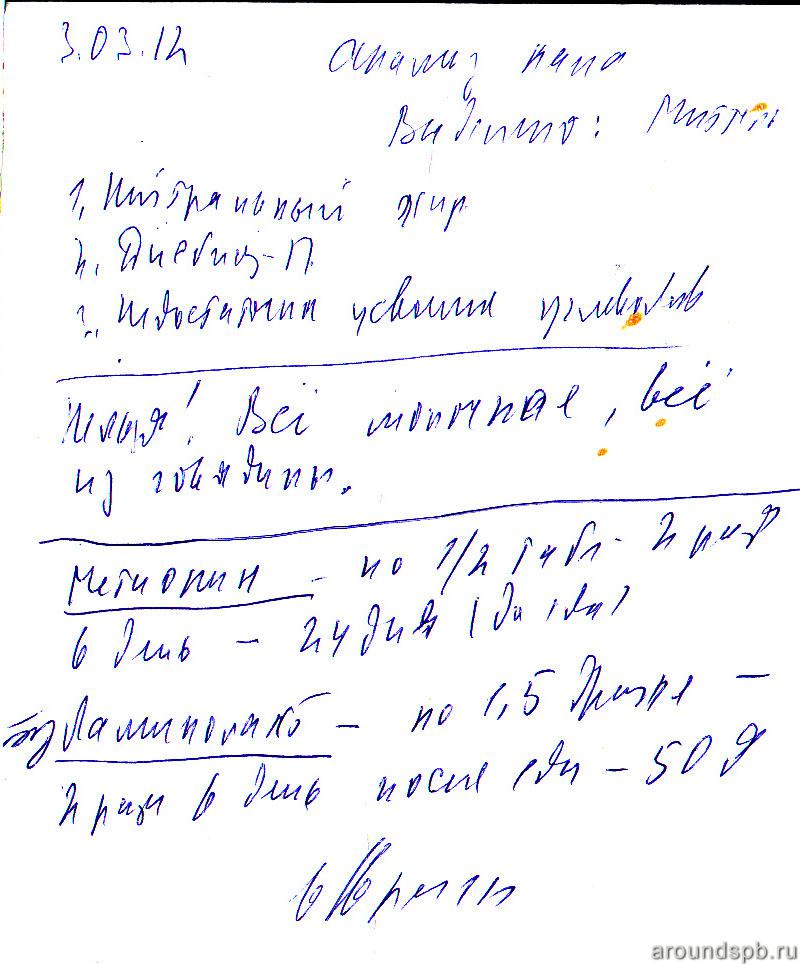 3.03.12
Анализ кала
Видимо:
1. Нейтральный жир
2.
3. усвоение углеводов
Нельзя! Всё молочное, всё
из говядины.
Метионин – по 1/2 табл. 2 раза
в день – 24 дня (до еды)
Ламинолакт – по 1,5 драже –
2 раза в день после еды – 50 д
aroundspb.ru